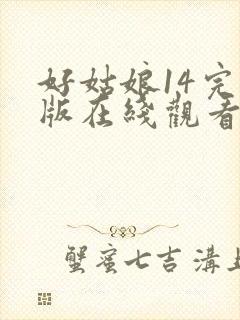 好姑娘14完
版在綫觀看
蟹蜜七吉溝上